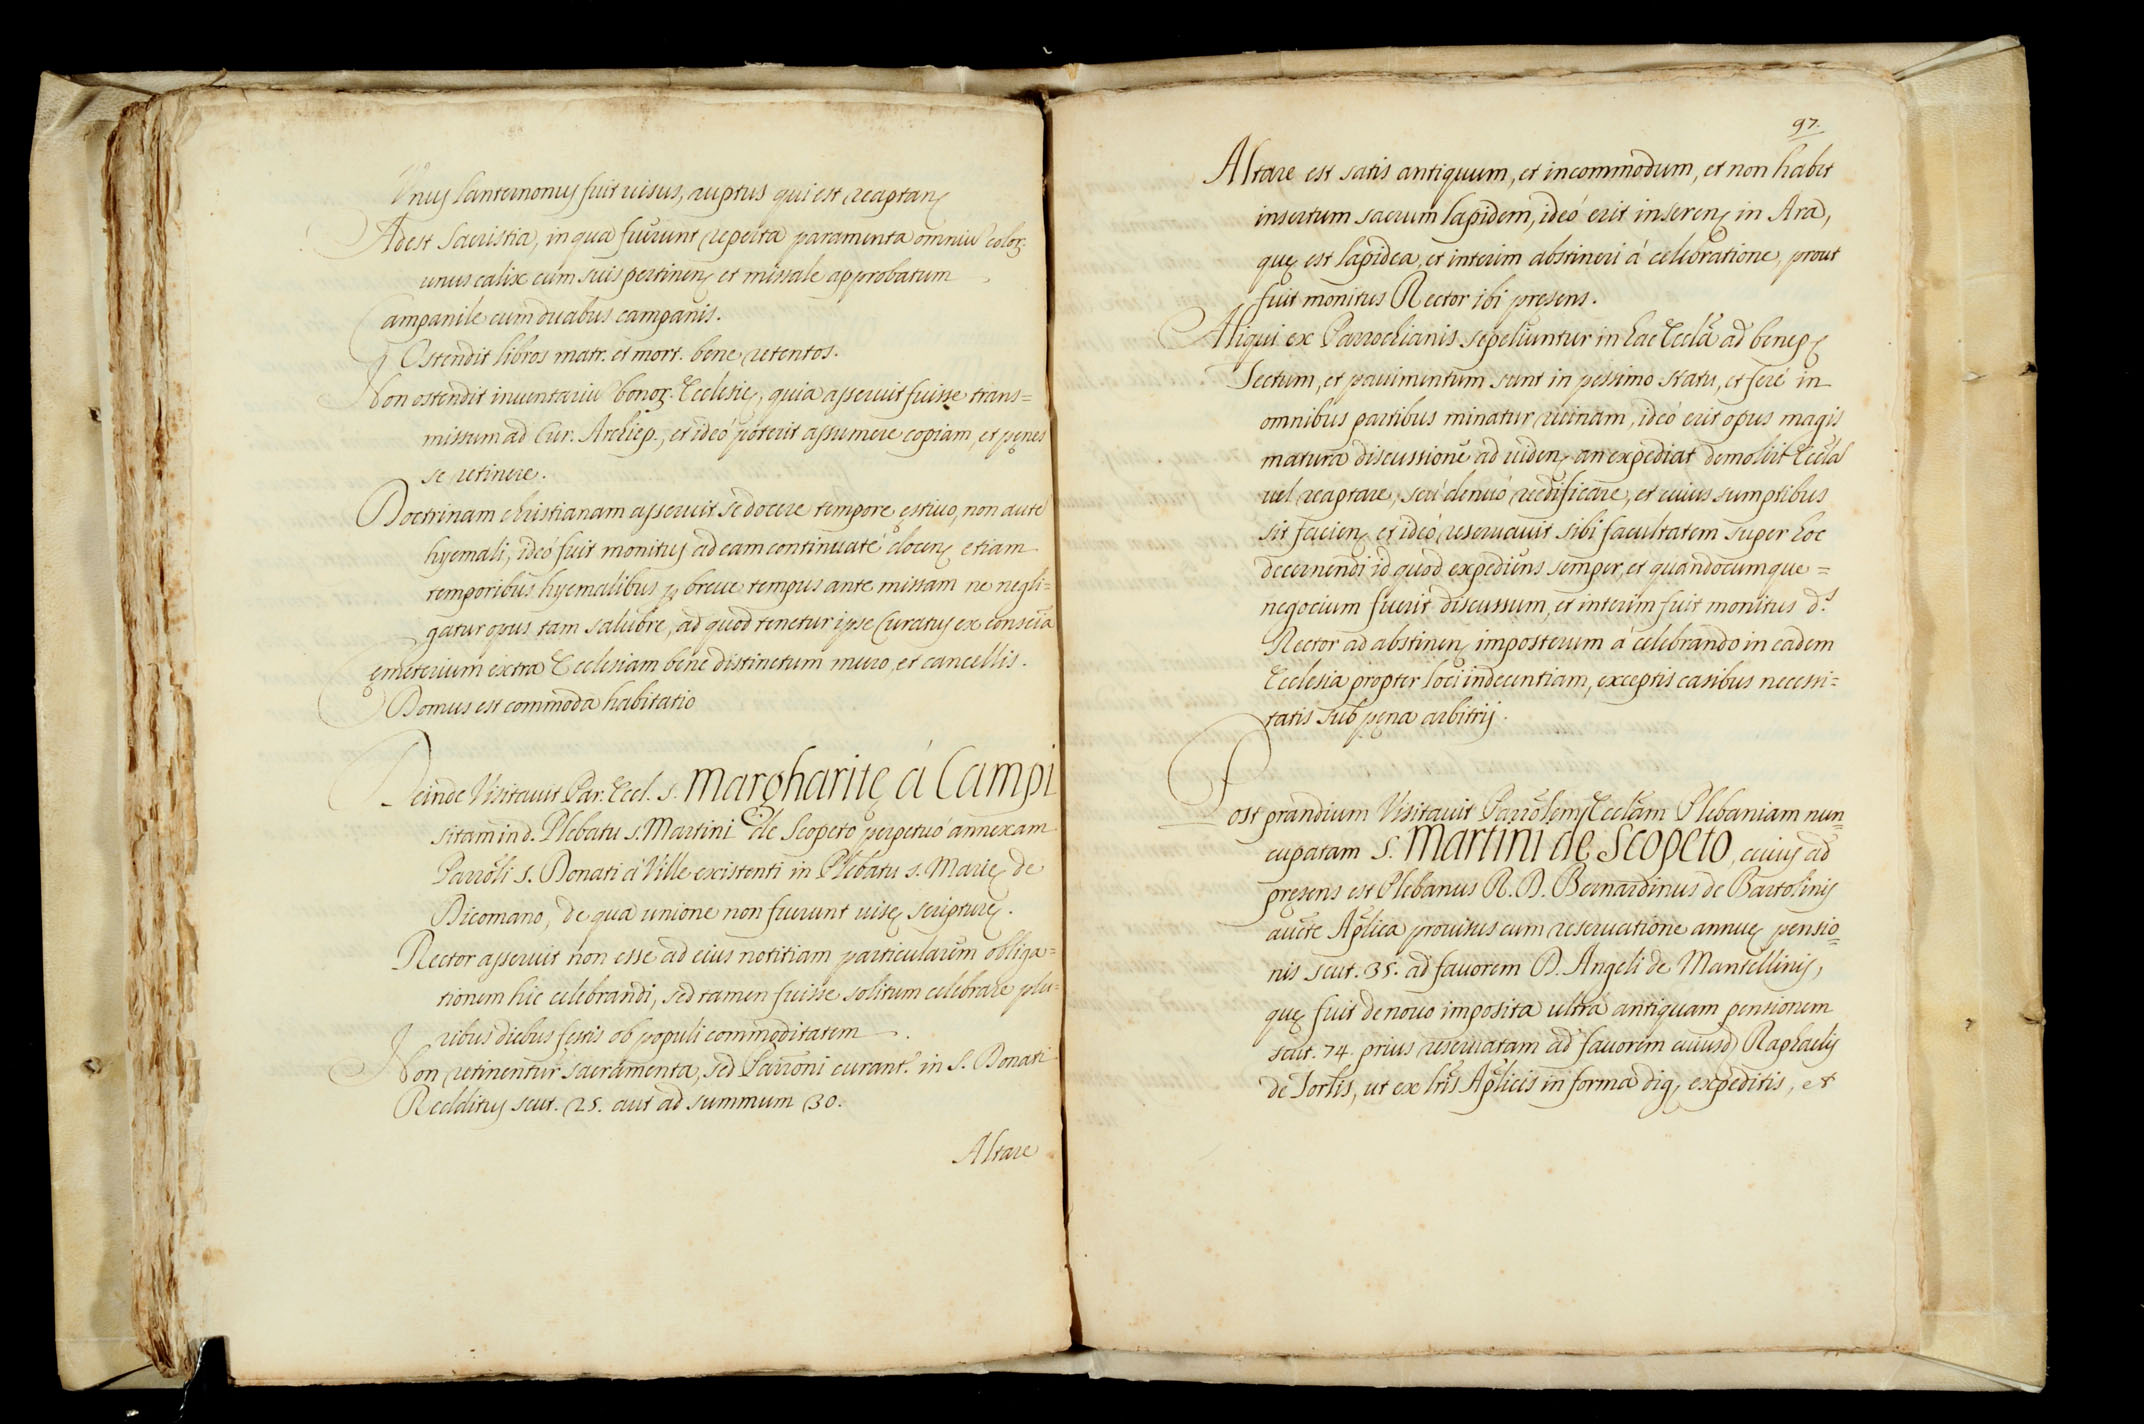 Unus lanternonus fuit uisus, ruptus qui est reaptanꝫ
Adest Sacristia, in qua fuerunt reperta paramenta omniu coloꝝ.
unus calix cum suis pertinenꝫ et missale approbatum
Campanile cum duabus campanis.
Ostendit libros matr. et mort. bene retentos.
Non ostendit inuentariu bonoꝝ. Ecclesię, quia asseruit fuisse trans=
missum ad Cur. Archiep., et ideó poterit assumere copiam, et pęnes
se retinere.
Doctrinam christianam asseruit se docere tempore ęstiuo, non autē
hyemali, ideó fuit monitus ad eam continuatē docenꝫ etiam
temporibus hyemalibus ꝑ breue tempus ante missam ne negli=
gatur opus tam salubre, ad quod tenetur ipse Curatus ex consciā
Cęmeterium extra Ecclesiam bene distinctum muro, et cancellis.
Domus est commoda habitatio
Deinde Visitauit Par. Eccl. S. Margharitę á Campi
sitam in d. Plebatu S. Martini de Scopeto perpetuó annexam
Parroli S. Donati á Ville existenti in Plebatu S. Marię de
Dicomano, de qua unione non fuerunt uisę scripturę.
Rector asseruit non esse ad eius notitiam particularem obliga=
tionem hic celebrandi, sed tamen fuisse solitum celebrare plu=
ribus diebus festis ob populi commoditatem.
Non retinentur sacramenta, sed Parroni curant.r in S. Donati
Redditus scut. 25. aut ad summum 30.
Altare
97.
Altare est satis antiquum, et incommodum, et non habet
insertum sacrum lapidem, ideó erit inserenꝫ in Ara,
quę est lapidea, et interim abstineri á celebratione, prout
fuit monitus Rector ibi pręsens.
Aliqui ex Parrochianis sepeliuntur in hac Ecclā ad benep.
Tectum, et pauimentum sunt in pessimo statu, et ferè in
omnibus partibus minatur ruinam, ideó erit opus magis
matura discussionē ad uidenꝫ an expediat demolirī Ecclā
uel reaptare, seú denuó reedificare, et cuius sumptibus
sit facienꝫ et ideó reseruauit sibi facultatem super hoc
decernendi id quod expediens semper, et quandocumque=
negocium fuerit discussum, et interim fuit monitus d.s
Rector ad abstinenꝫ imposterum á celebrando in eadem
Ecclesia propter loci indecentiam, exceptis casibus necessi=
tatis sub pęna arbitrij.
Post prandium Visitauit Parrōlem Ecclām Plebaniam nun=
cupatam S. Martini de Scopeto, cuius ad
pręsens est Plebanus R. D. Bernardinus de Bartolinis
aucte Aplica prouisus cum reseruatione annuę pensio=
nis scut. 35. ad fauorem D. Angeli de Mantellinis,
quę fuit de nouo imposita ultrá antiquam pensionem
scut. 74. prius reseruatam ad fauorem cuiusd Raphaelis
de Tortis, ut ex lris Aplicis in forma dig. expeditis, et